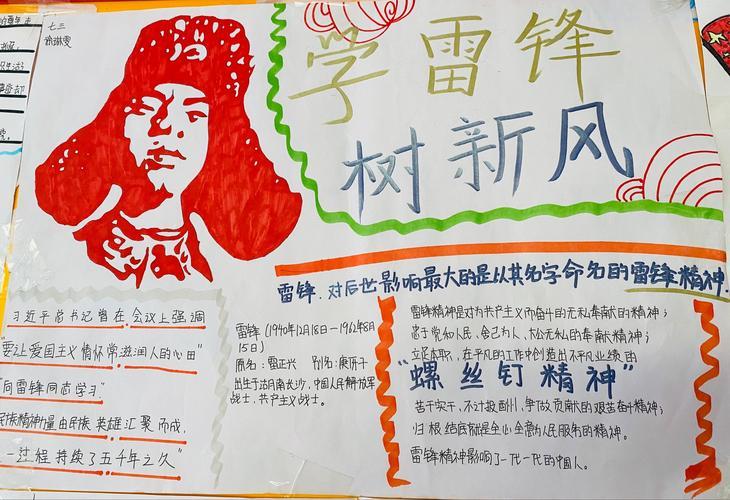 七三
学雷锋
树新风
雷锋.对后世影响最大的是以其名字命名的雷锋精神.
习近平总书记曾在会议上强调
"要让爱国主义情怀常滋润人的心田"
向雷锋同志学习"
民族精神力量由民族英雄汇聚而成,
一过程持续了五千年之久"
雷锋(1940年12月18日-1962年8月
15日)
原名:雷正兴 别名:庚伢子
出生于湖南长沙,中国人民解放军
战士,共产主义战士。
雷锋精神是对为共产主义而奋斗的无私奉献的精神;
忠于党和人民、舍己为人、大公无私的奉献精神;
立足本职、在平凡的工作中创造出不平凡业绩的
"螺丝钉精神"
苦干实干、不计报酬、争做贡献的艰苦奋斗精神;
归根结底就是全心全意为人民服务的精神。
雷锋精神影响了一代一代的中国人。